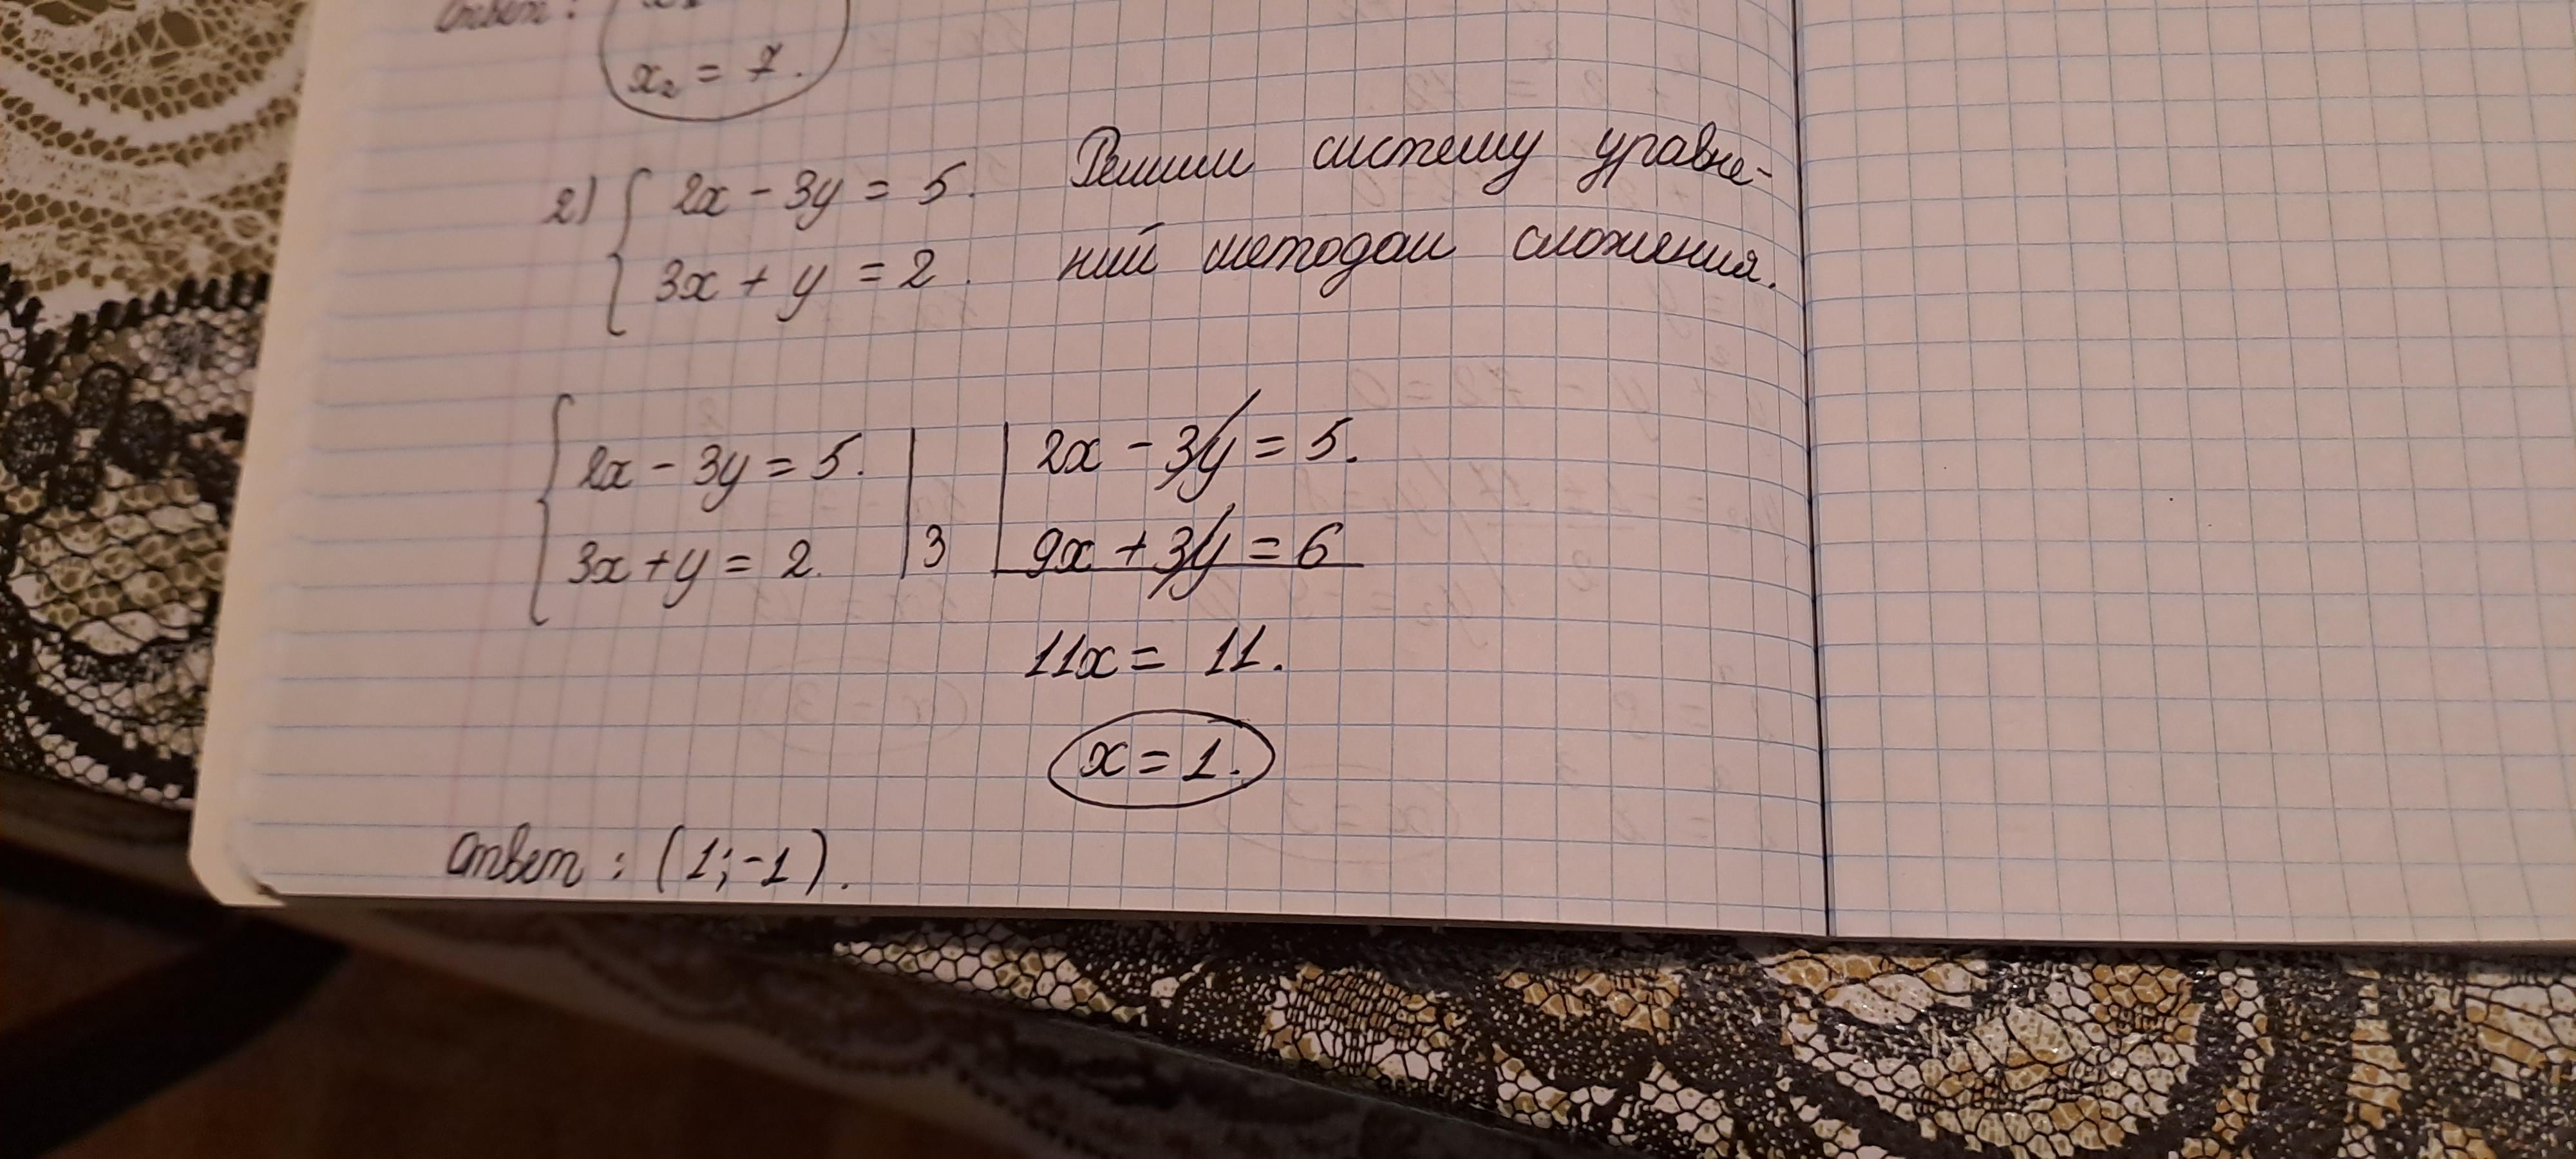 Ответ:
x₂ = 7.
2) { 2x - 3y = 5. Решим систему уравне-
3x + y = 2. ний методом сложения.
{ 2x - 3y = 5. | | 2x - 3y = 5.
3x + y = 2. | 3 | 9x + 3y = 6
11x = 11.
x = 1.
Ответ: (1; -1).